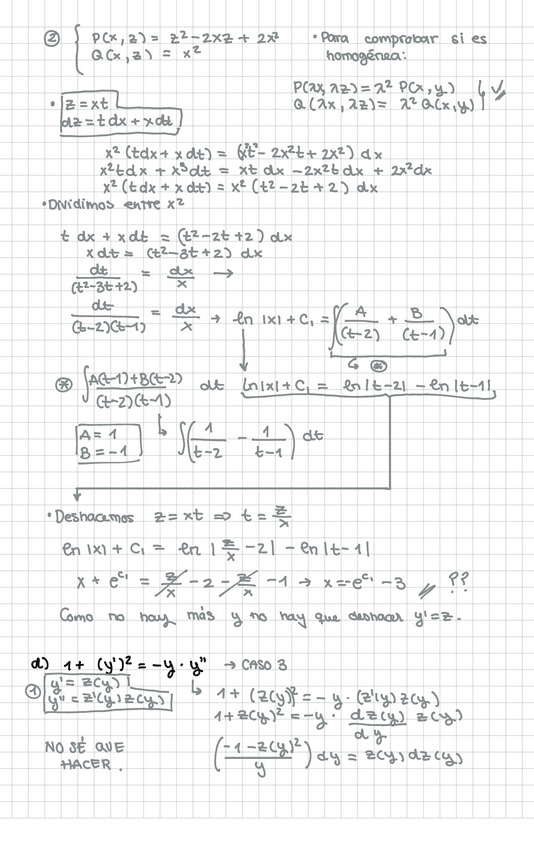 ② { P(x,z) = z² - 2xz + 2x²
Q(x,z) = x²
• Para comprobar si es
homogénea:
P(λx, λz) = λ² P(x,y)
Q(λx, λz) = λ² Q(x,y)
• z = xt
dz = t dx + x dt
x² (tdx + x dt) = (x²t² - 2x²t + 2x²) dx
x²t dx + x³dt = xt dx - 2x²t dx + 2x²dx
x² (t dx + x dt) = x² (t² - 2t + 2) dx
• Dividimos entre x²
t dx + x dt = (t² - 2t + 2) dx
x dt = (t² - 3t + 2) dx
dt/(t² - 3t + 2) = dx/x →
dt/((t-2)(t-1)) = dx/x → ln |x| + C₁ = ∫(A/(t-2) + B/(t-1)) dt
↳ ⊛
⊛ ∫ (A(t-1) + B(t-2))/((t-2)(t-1)) dt ln|x| + C₁ = ln|t-2| - ln|t-1|
A = 1
B = -1
↳ ∫(1/(t-2) - 1/(t-1)) dt
• Deshacemos z = xt ⇒ t = z/x
ln |x| + C₁ = ln |z/x - 2| - ln|t-1|
x + e^c₁ = z/x - 2 - z/x - 1 → x = -e^c₁ - 3 // ??
Como no hay más y no hay que deshacer y' = z.
d) 1 + (y')² = -y · y'' → CASO 3
① y' = z(y)
y'' = z'(y) z(y)
↳ 1 + (z(y))² = - y · (z'(y) z(y))
1 + z(y)² = -y · dz(y)/dy z(y)
NO SÉ QUE
HACER.
((-1 - z(y)²)/y) dy = z(y) dz(y)